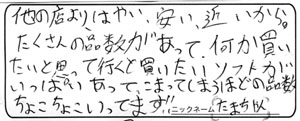 他の店よりはやい、安い、近いから。
たくさんの品数があって、何か買い
たいと思って行くと買いたいソフトが
いっぱいあって、こまってしまうほどの品数
ちょこちょこいってます!! ニックネーム(たまち